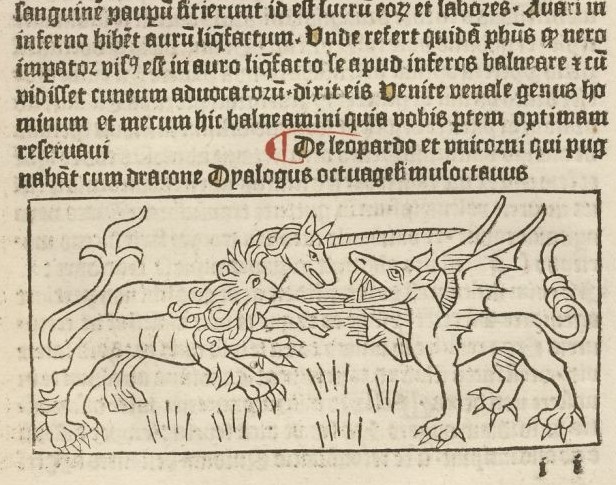 sanguinē paupeꝝ sitierunt id est lucrū eoꝝ et labores. Auari in
inferno bibēt aurū liq̄factum. Unde refert quidā ph̄us ꝙ nero
imꝑator visꝰ est in auro liq̄facto se apud inferos balneare ⁊ cū
vidisset cuneum aduocatorū. dixit eis Uenite venale genus ho
minum et mecum hic balneamini quia vobis ꝑtem optimam
reseruaui De leopardo et vnicorni qui pug
nabāt cum dracone Dyalogus octuagesimusoctauus
i i